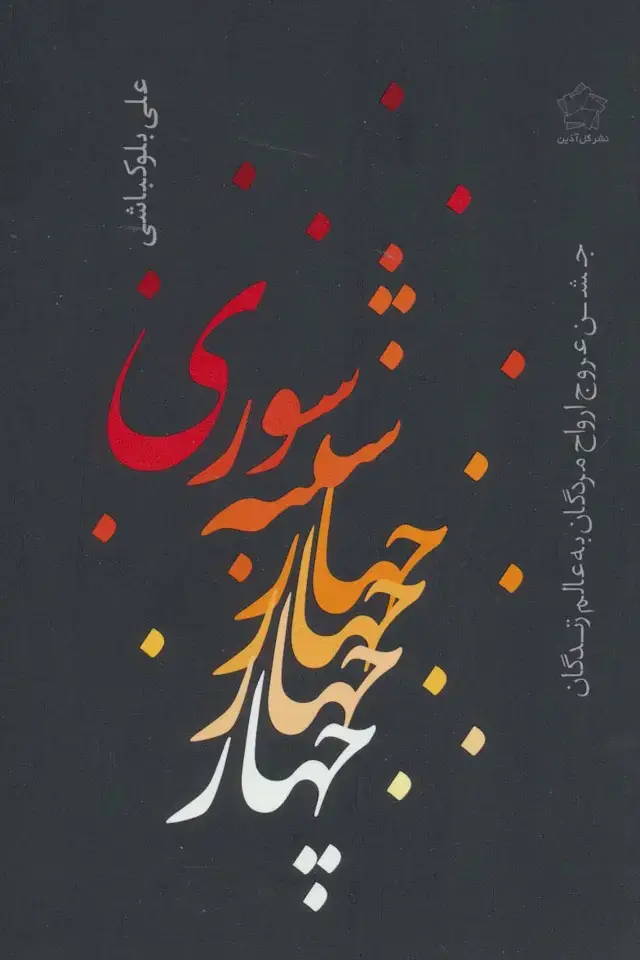 علی بلوکباشی
چهار
چهار
چهار
چهار
شنبه
سوری
جشن عروج ارواح مردگان به عالم زندگان
نشر گل آذین